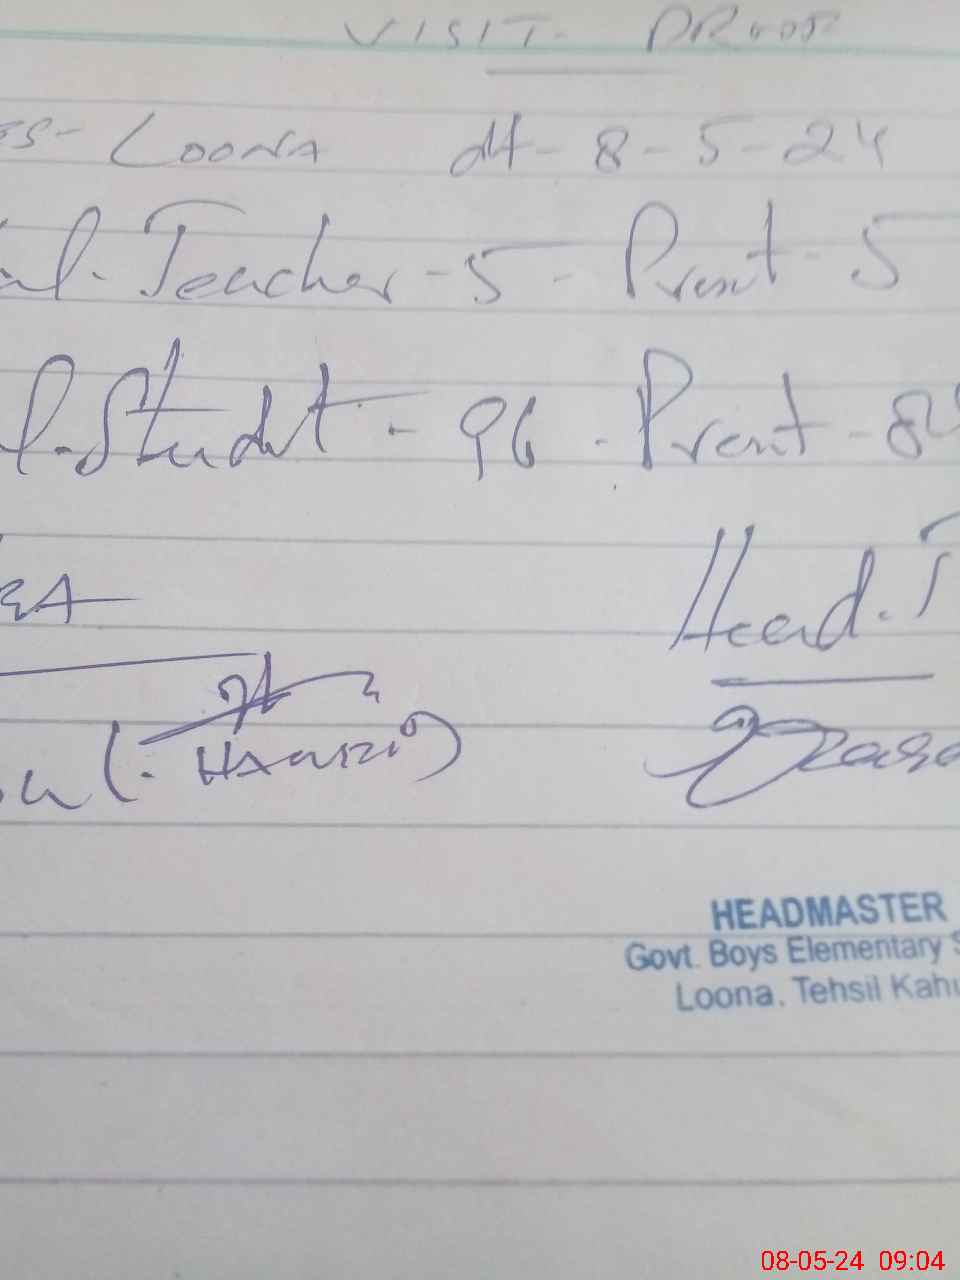 VISIT PROOF
ES- LOONA dt- 8-5-24
al. Teacher-5- Presnt-5
l-Studnt-96. Presnt-84
EA
Head.T
HEADMASTER
Govt. Boys Elementary S
Loona, Tehsil Kahu
08-05-24 09:04